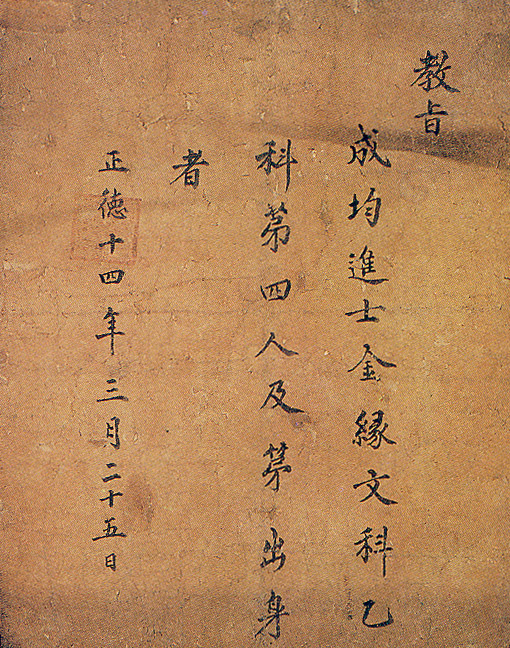 教旨
成均進士金緣文科乙
科第四人及第出身
者
正德十四年三月二十五日